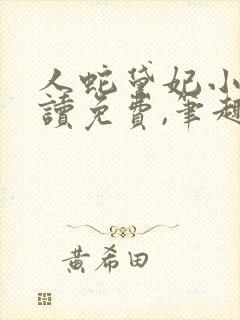 人蛇黛妃小
讀免費,筆趣
黃希田